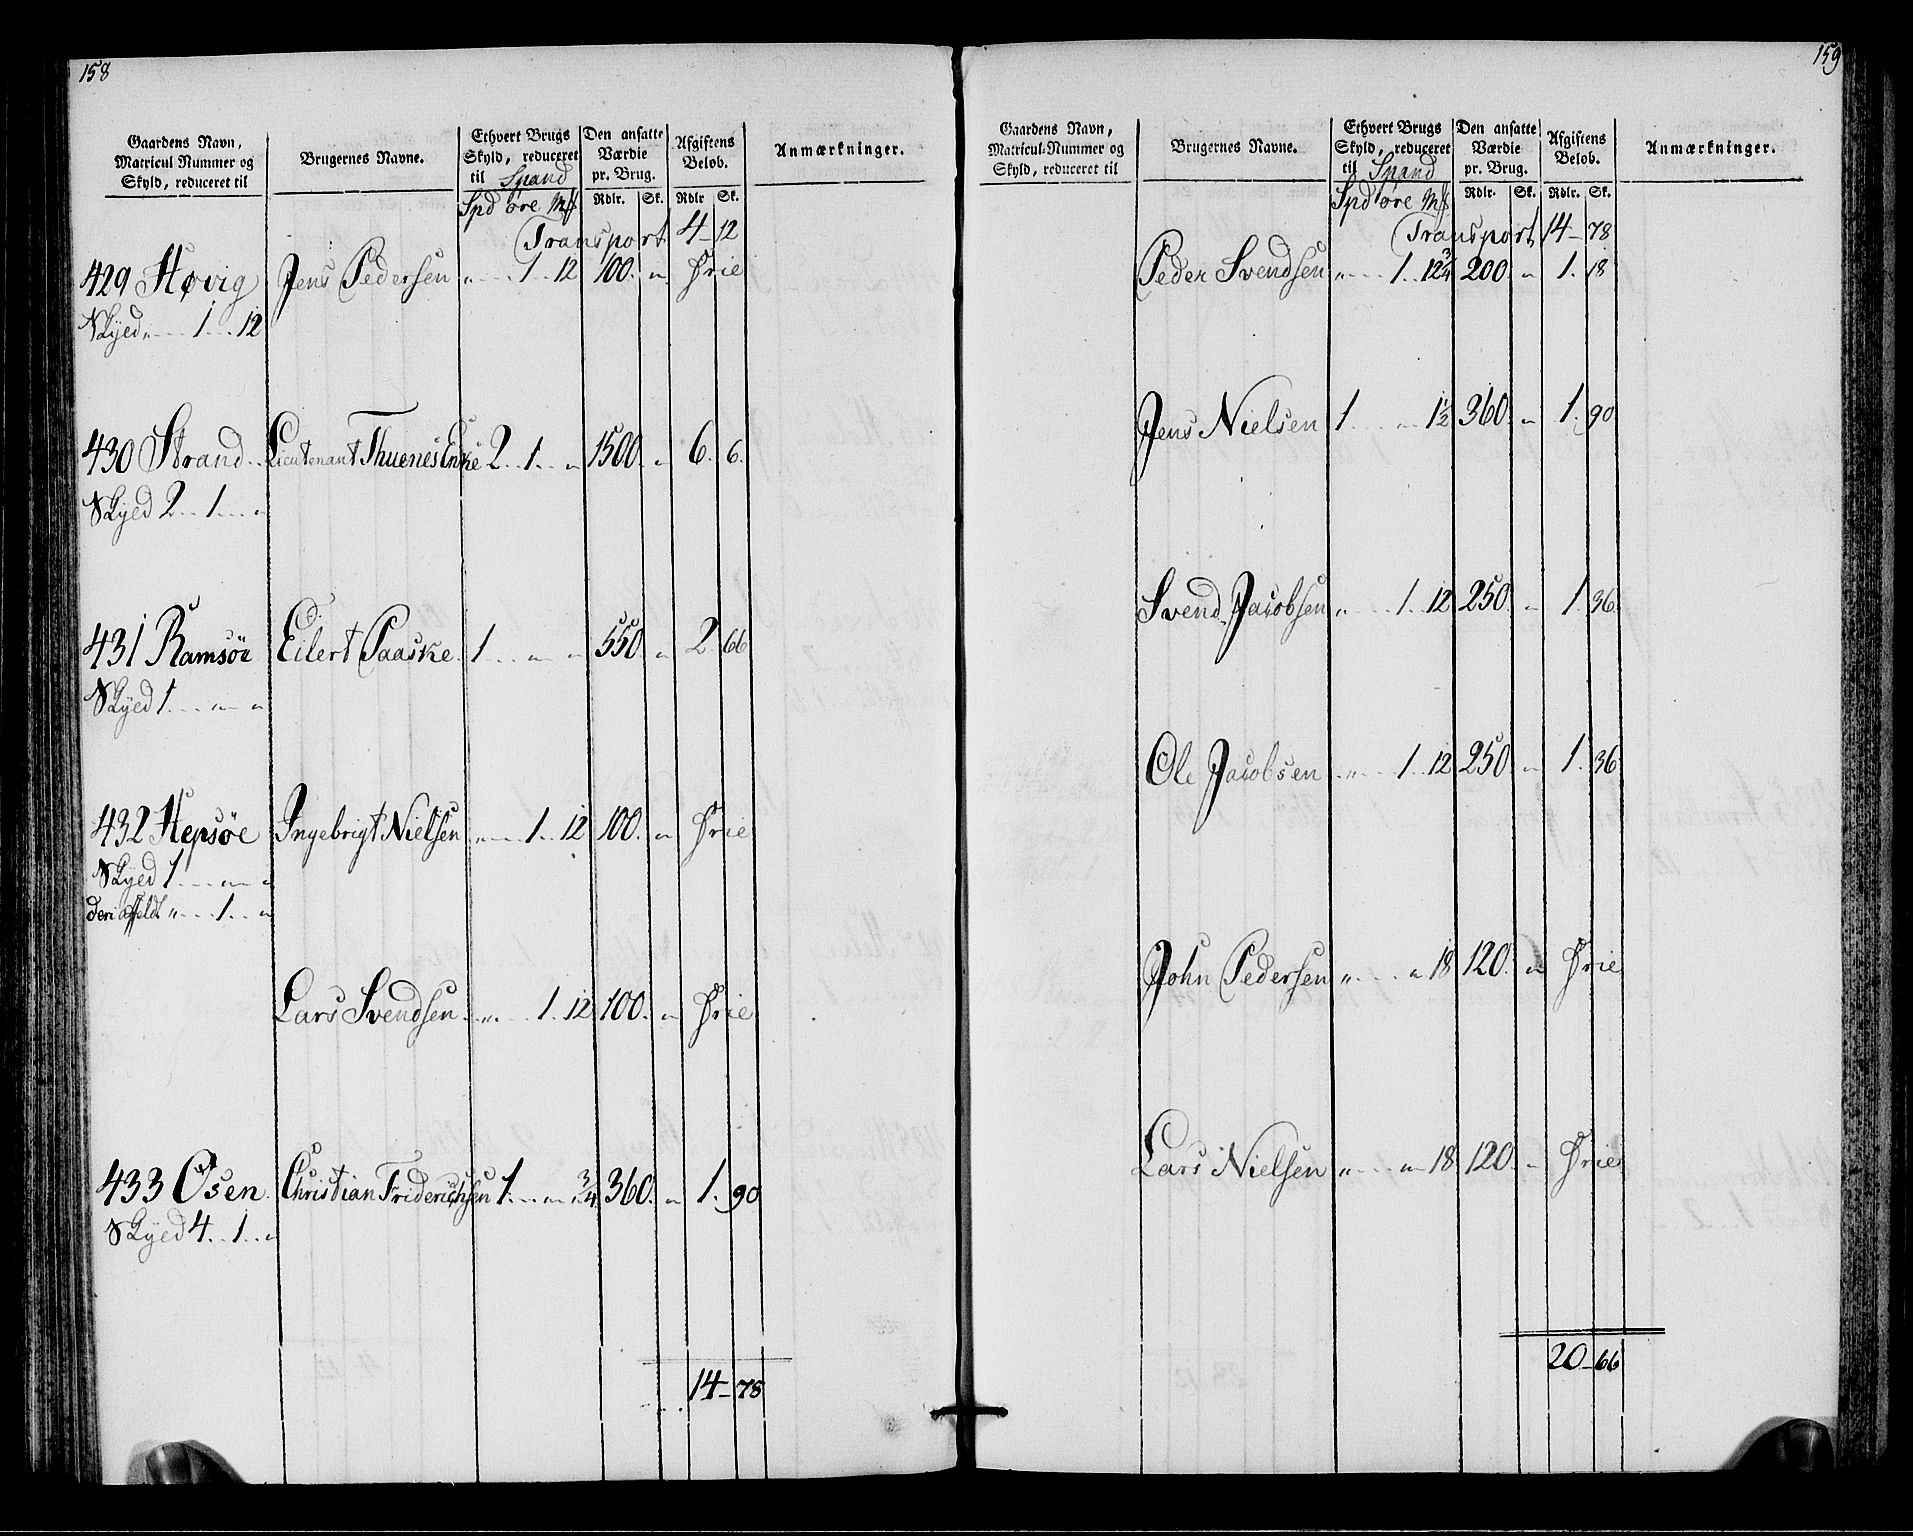 158
Gaardens Navn, Matricul Nummer og Skyld, reduceret til | Brugernes Navne. | Ethvert Brugs Skyld, reduceret til Spand | Den ansatte Værdie pr. Brug. | Afgiftens Beløb. | Anmærkninger.
Spd øre Mſ | Rdlr. Sk. | Rdlr Sk.
Transport 4 - 12
429 Høvig Jens Pedersen „ 1 12 100 „ Frie
Skyed „ 1 12
430 Strand Lieutenant Thuenes Enke 2 1 „ 1500 „ 6. 6.
Skyed 2 1 „
431 Ramsøe Eilert Paaske 1 „ „ 550 „ 2. 66
Skyed 1 „ „
432 Hepsøe Ingebrigt Nielsen „ 1 12 100 „ Frie
Skyed 1 „ „
deri affeldt „ 1 „
Lars Svendsen „ 1 12 100 „ Frie
433 Osen Christian Friderichsen 1 „ 3/4 360 „ 1. 90
Skyed 4 1 „
14 - 78
159
Gaardens Navn, Matricul-Nummer og Skyld, reduceret til | Brugernes Navne. | Ethvert Brugs Skyld, reduceret til Spand | Den ansatte Værdie pr. Brug. | Afgiftens Beløb. | Anmærkninger.
Spd øre Mſ | Rdlr. Sk. | Rdlr. Sk.
Transport 14 - 78
Peder Svendsen „ 1 12 3/4 200 „ 1. 18
Jens Nielsen 1 „ 1 1/2 360 „ 1. 90
Svend Jacobsen „ 1 12 250 „ 1. 36
Ole Jacobsen „ 1 12 250 „ 1. 36
John Pedersen „ „ 18 120 „ Frie
Lars Nielsen „ „ 18 120 „ Frie
20 - 66